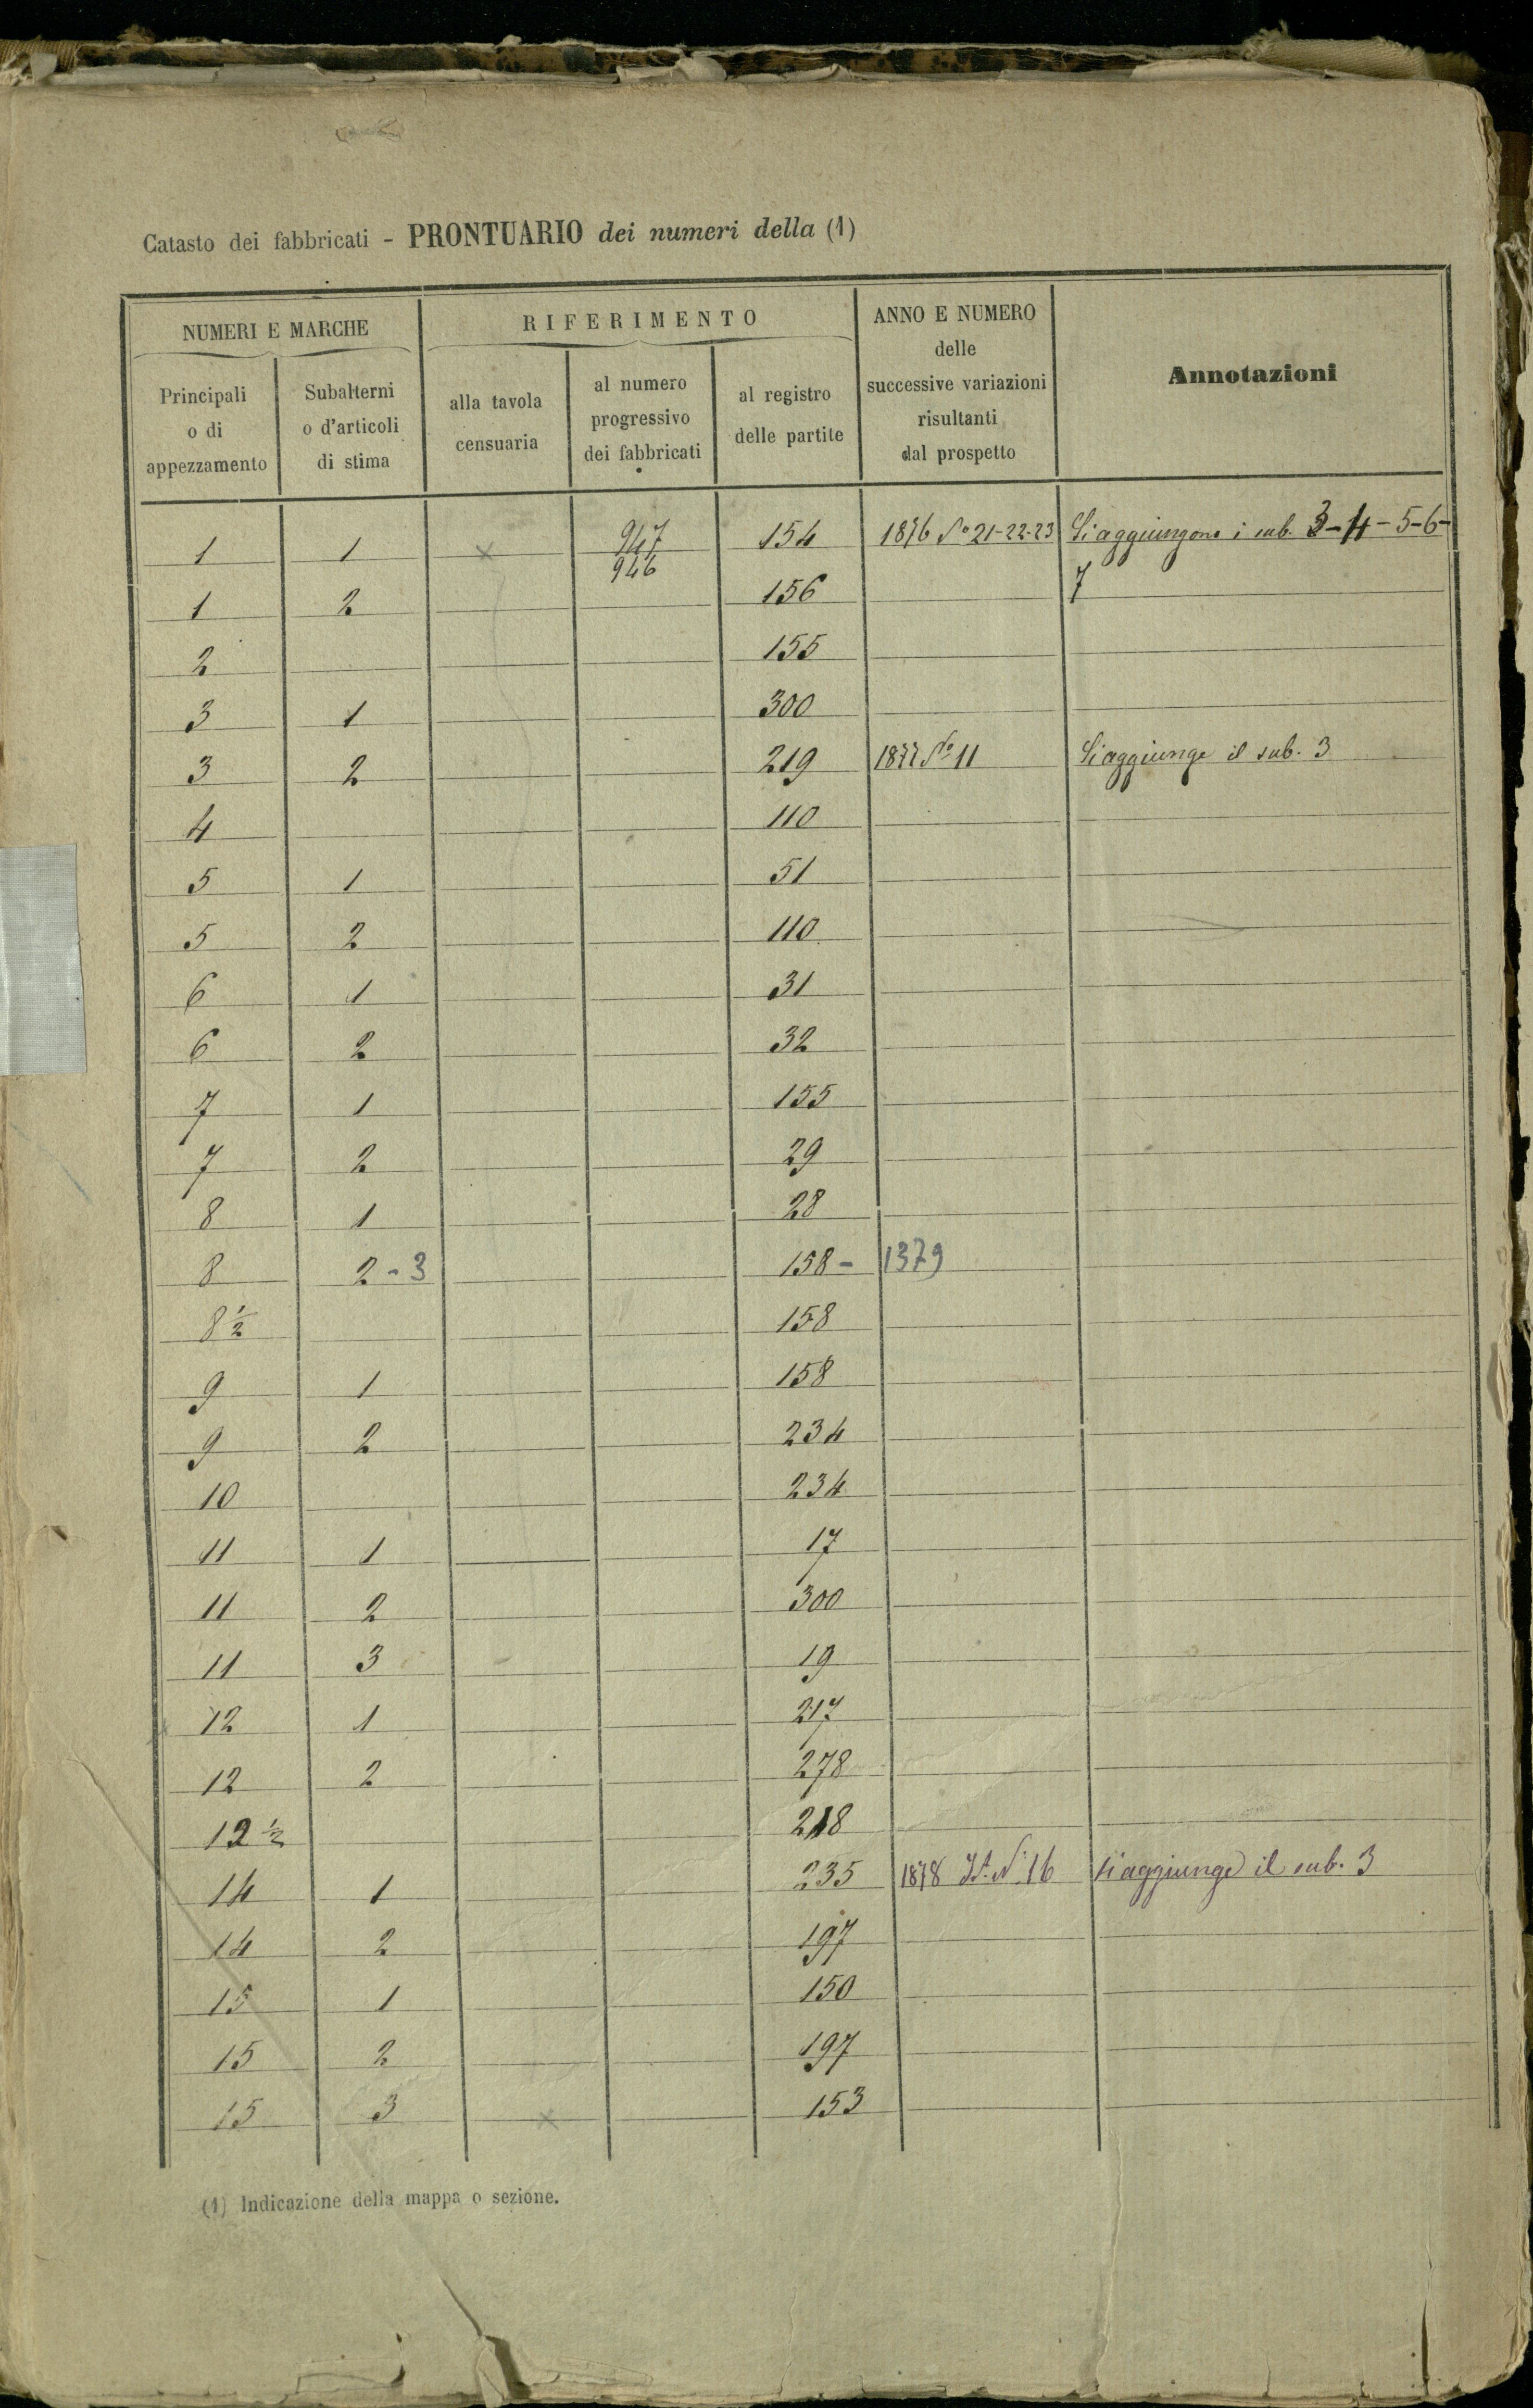 Catasto dei fabbricati - PRONTUARIO dei numeri della (1)
NUMERI E MARCHE
RIFERIMENTO
ANNO E NUMERO
delle
successive variazioni
risultanti
dal prospetto
Annotazioni
Principali
o di
appezzamento
Subalterni
o d'articoli
di stima
alla tavola
censuaria
al numero
progressivo
dei fabbricati
al registro
delle partite
1 1 x 947 154 1876 No 21-22-23 Si aggiungono i sub. 3-4-5-6-
946
1 2 156 7
2 155
3 1 300
3 2 219 1877 No 11 Si aggiunge il sub. 3
4 110
5 1 51
5 2 110
6 1 31
6 2 32
7 1 155
7 2 29
8 1 28
8 2-3 158- 1379
8 1/2 158
9 1 158
9 2 234
10 234
11 1 17
11 2 300
11 3 19
12 1 217
12 2 278
12 1/2 218
14 1 235 1878 N. 16 si aggiunge il sub. 3
14 2 197
15 1 150
15 2 197
15 3 x 153
(1) Indicazione della mappa o sezione.